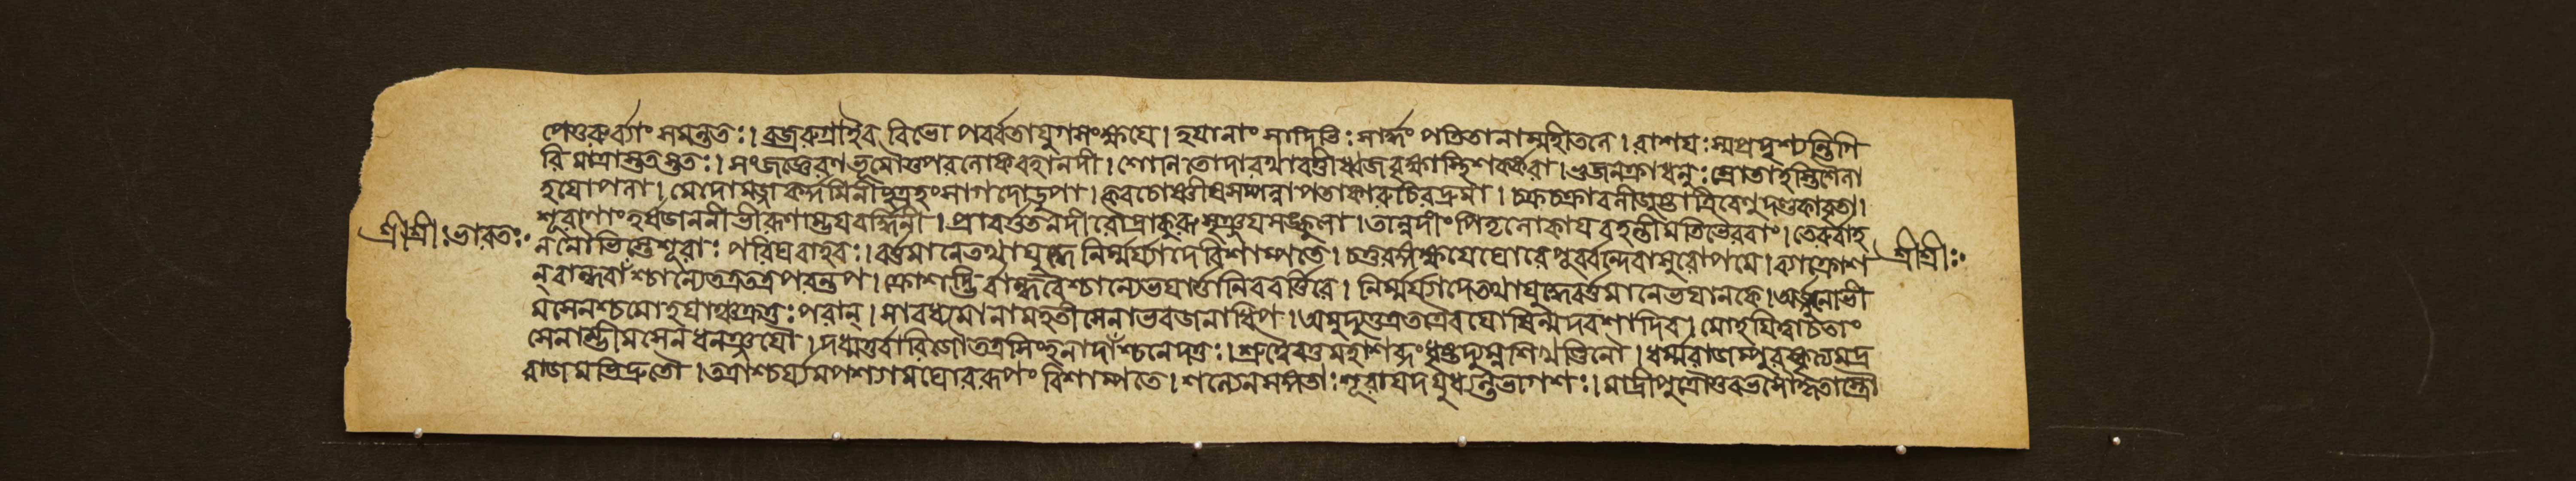 পেণ্ডরুর্ব্যাং সমন্ততঃ। বজ্ররুগ্নাইব বিভো পর্ব্বতাযুগসংক্ষযে। হযানাং সাদিভিঃ সার্দ্ধং পতিতানাম্মহীতলে। রাশযঃ স্মপ্রদৃশ্যন্তিগি
রিমাত্রাস্ততস্ততঃ। সংজজ্ঞেরণভূমৌতুপরলোকবহানদী। শোনিতোদারথাবর্ত্তাধ্বজবৃক্ষাস্থিশর্ক্করা। ভুজনক্রাধনুঃস্রোতাহস্তিশৈলা
হযোপলা। মেদোমজ্জাকর্দ্দমিনীছত্রহংসাগদোড়ুপা। কবচোষ্ণীষসম্পন্নাপতাকারুচিরদ্রুমা। চক্রচক্রাবলীজুষ্টাত্রিবেণুদণ্ডকাবৃতা।
শূরাণাংহর্ষজননীভীরূণাম্ভযবর্দ্ধিনী। প্রাবর্ত্ততনদীরৌদ্রাকুরুসৃঞ্জযসঙ্কুলা। তান্নদীংপিতৃলোকাযবহন্তীমতিভৈরবাং। তেরুর্ব্বাহ
শ্রীশ্রীঃভারতঃ
নৌভিস্তেশূরাঃ পরিঘবাহবঃ। বর্ত্তমানেতথাযুদ্ধে নির্ম্মর্য্যাদেবিশাম্পতে। চতুরঙ্গক্ষযেঘোরেপূর্ব্বন্দেবাসুরোপমে। ব্যাক্রোশ
শ্রীশ্রীঃ
ন্বান্ধবাঁশ্চান্যেতত্রতত্রপরন্তপ। ক্রোশদ্ভি র্ব্বান্ধবৈশ্চান্যেভযার্ত্তানিববর্ত্তিরে। নির্ম্মর্য্যাদেতথাযুদ্ধেবর্ত্তমানেভযানকে। অর্জ্জুনোভী
মসেনশ্চমোহযাঞ্চক্রতুঃ পরান্। সাবধ্যমানামহতীসেনাতবজনাধিপ। অমুহ্যত্তত্রতত্রৈবযোষিন্মদবশাদিব। মোহযিত্বাচতাং
সেনাম্ভীমসেনধনঞ্জযৌ। দধ্মতুর্ব্বারিজৌতত্রসিংহনাদাঁশ্চনেদতুঃ। শ্রুত্বৈবতুমহাশব্দংধৃষ্টদ্যুম্নশিখণ্ডিনৌ। ধর্ম্মরাজম্পুরস্কৃত্যমদ্র
রাজমভিদ্রুতৌ। তত্রাশ্চর্য্যমপশ্যামঘোররূপং বিশাম্পতে। শল্যেনসঙ্গতাঃ শূরাযদযুধ্যন্তভাগশঃ। মাদ্রীপুত্রৌতুরভসৌকৃতাস্ত্রৌ